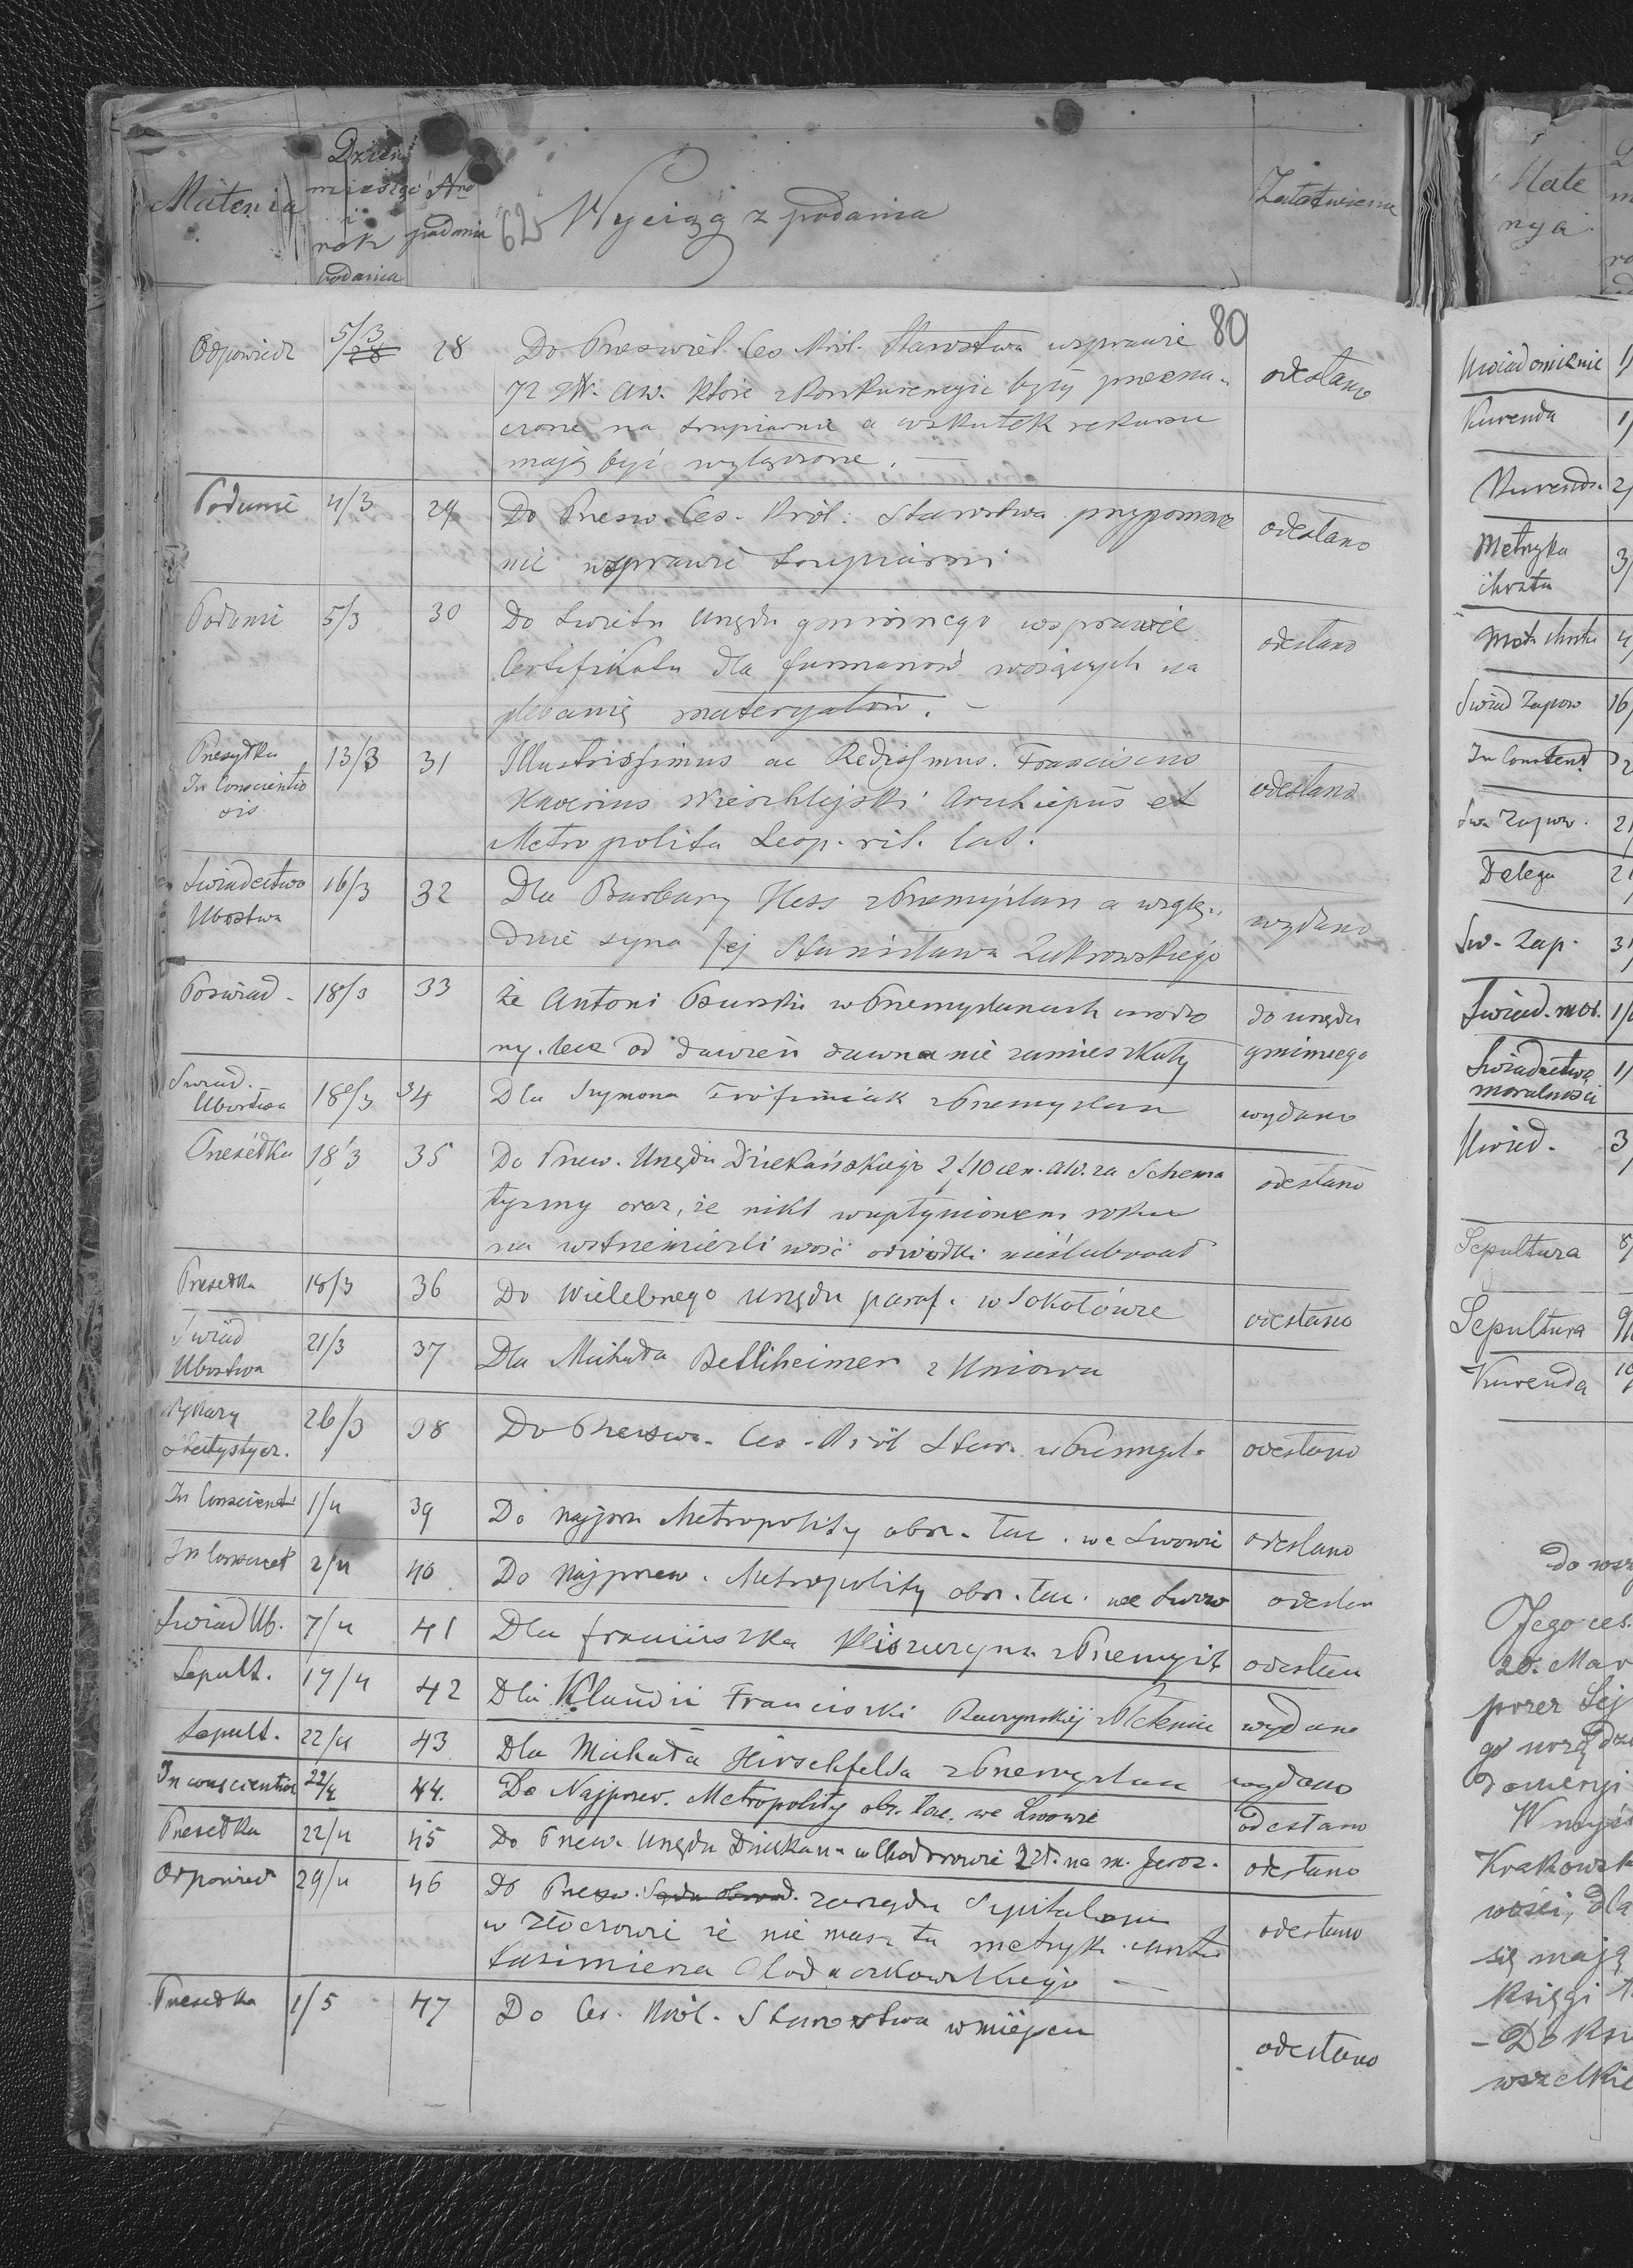 Materia
Dzień
miesiąc
i
rok
podania
Nro
podania
62
Wyciąg z podania
Załatwienie
80
Odpowiedz 5/3 28 Do Przeświet. Ces Król. Starostwa wsprawie
72 zł. aw. które zkonkurencyi były przezna-
czone na trupiarnię a wskutek rekursu odesłano
mają być wyłączone. —
Podanie 4/3 29 Do Presw. Ces. Król. Starostwa przypomnie
nie wsprawie trupiarni odesłano
Podanie 5/3 30 Do Swietn Urzędu gminnego wsprawie
Certifikatu dla furmanów wożących na odesłano
plebanię materyałów. —
Przesyłka 13/3 31 Illustrissimus ac Redissmus. Franciscus
In Conscientio
sis
Xaverius Wierzchlejski Archiepus et odesłano
Metropolita Leop. rit. lat.
Swiadectwo 16/3 32 Dla Barbary Hess zPrzemyślan a wzglę-
Ubostwa
dnie syna jej Stanisława Żukrowskiego wydano
Poświad. 18/3 33 że Antoni w Przemyslanach urodzo do urzędu
ny. lecz od dawien dawna nie zamieszkały gminnego
Swiad. 18/3 34 Dla Szymona Trofimiak z Przemyslan wydano
Ubostwa
Przesełka 18/3 35 Do Przew. Urzędu Dziekańskiego 2 f 10 cen. aw. za Schema odesłano
tyzmy oraz, że nikt wupłynionem roku
na wstrzemięźliwość odwódki nieślubował
Przesełka 18/3 36 Do Wielebnego urzędu paraf. w Sokołówce odesłano
Swiad 21/3 37 Dla Michała Bettiheimer z Uniowa
Ubostwa
Wykazy 26/3 38 Do Przesw. Ces. Król Star. w Przemysl. odesłano
statystycz.
In Conscienti 1/4 39 Do Najprzw Metropolity obrz. łac. we Lwowie odesłano
In Conscient 2/4 40 Do Najprzew. Metropolity obrz. łac. we Lwow odesłan
Swiad Ub. 7/4 41 Dla franciszka zPrzemyśl odesłan
Sepult. 17/4 42 Dla Klaudii Franciszki Raczynskiej wydano
Sepult. 22/4 43 Dla Michała Hirschfelda zPrzemyslan wydano
In conscientios 22/4 44. Do Najprzew. Metropolity obr. łac. we Lwowie odesłano
Przesełka 22/4 45 Do Przew. Urzędu Dziekan. w Chodorowie 2 zł. na m. Jeroz. odesłano
Odpowied 29/4 46 Do Przesw. zarządu Szpitalnego
w Złoczowie że nie masz tu metryk. chrztu odesłano
Kazimierza
Przesełka 1/5 47 Do Ces. Król. Starostwa wmiejscu odesłano
Mate
rya
Uwiadomienie
Kurenda
Kurenda
Metryka
chrztu
Met. chrztu
Swiad Zapow
In Conscient
Swa Zapow.
Delega
Sw. Zap.
Swiad. mor.
Swiadectwo
moralności
Uwiad.
Sepultura
Sepultura
Kurenda
Do wsz
Jego ces.
20. Mar
przez Sej
go urzą
domeryi
W myśl
Krakowsk
wości, dla
się mają
księgi
- Do ksi
wszelkie